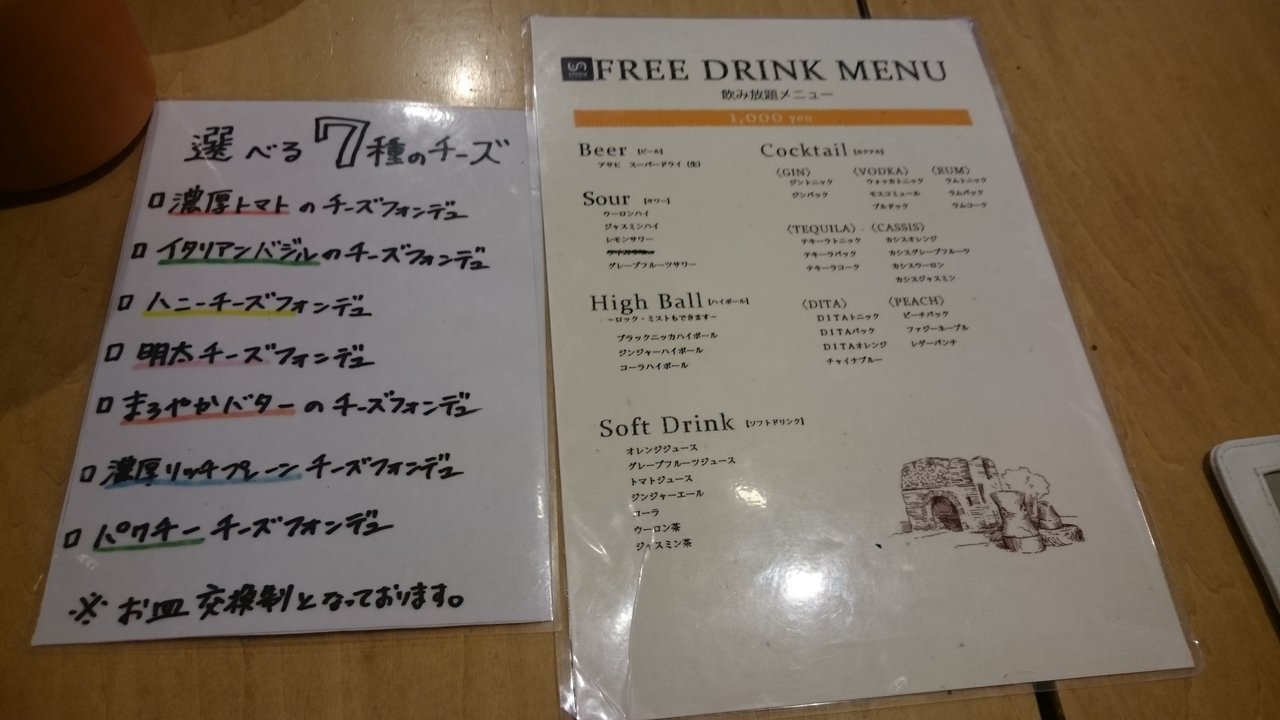 選べる7種のチーズ
□ 濃厚トマトのチーズフォンデュ
□ イタリアンバジルのチーズフォンデュ
□ ハニーチーズフォンデュ
□ 明太チーズフォンデュ
□ まろやかバターのチーズフォンデュ
□ 濃厚リッチプレーンチーズフォンデュ
□ パクチーチーズフォンデュ
※お皿交換制となっております。
FREE DRINK MENU
飲み放題メニュー
1,000 yen
Beer [ビール]
アサヒ スーパードライ（生）
Sour [サワー]
ウーロンハイ
ジャスミンハイ
レモンサワー
グレープフルーツサワー
High Ball [ハイボール]
～ロック・ミストもできます～
ブラックニッカハイボール
ジンジャーハイボール
コーラハイボール
Cocktail [カクテル]
〈GIN〉
ジントニック
ジンバック
〈VODKA〉
ウォッカトニック
モスコミュール
ブルドック
〈RUM〉
ラムトニック
ラムバック
ラムコーク
〈TEQUILA〉
テキーラトニック
テキーラバック
テキーラコーク
〈CASSIS〉
カシスオレンジ
カシスグレープフルーツ
カシスウーロン
カシスジャスミン
〈DITA〉
DITAトニック
DITAバック
DITAオレンジ
チャイナブルー
〈PEACH〉
ピーチバック
ファジーネーブル
レゲーパンチ
Soft Drink [ソフトドリンク]
オレンジジュース
グレープフルーツジュース
トマトジュース
ジンジャーエール
コーラ
ウーロン茶
ジャスミン茶